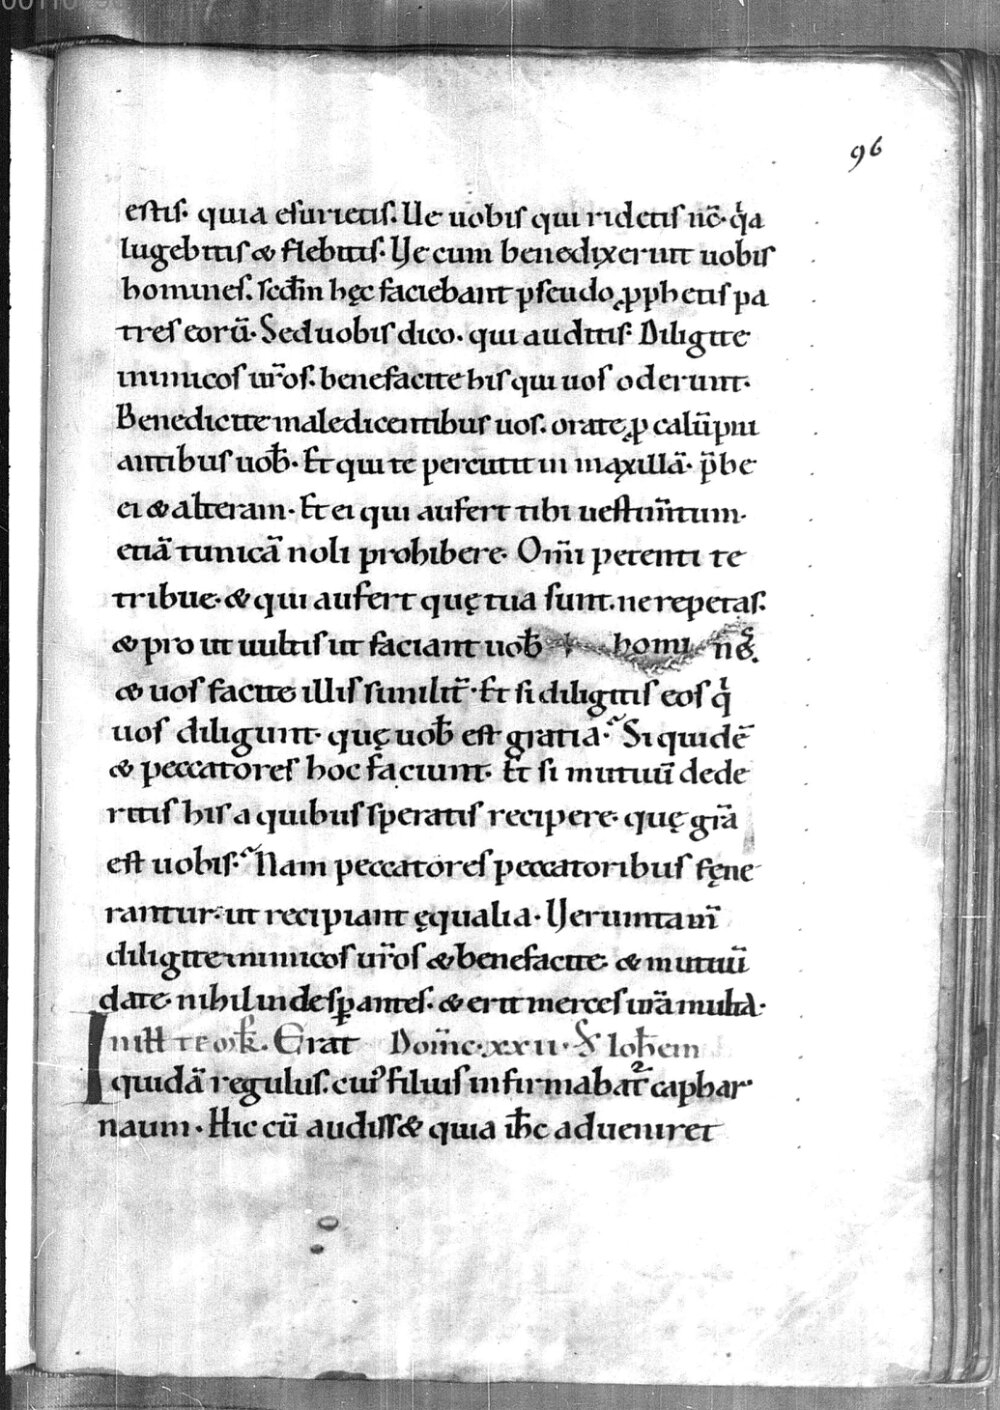 96
estis. quia esurietis. Ue uobis qui ridetis nc̄. q̇a
lugebitis & flebitis. Ve cum benedixerunt uobis
homines. scd̄m hęc faciebant pseudo ꝓphetis pa
tres eorū. Sed uobis dico. qui auditis. Diligite
inimicos ur̄os. benefacite his qui uos oderunt.
Benedicite maledicentibus uos. orate ꝓ calūpni
antibus uob̄. Et qui te percutit in maxillā. p̄be
ei & alteram. Et ei qui aufert tibi uestim̄tum.
etiā tunicā noli prohibere. Om̄i petenti te
tribue. & qui aufert quę tua sunt. ne repetas.
& pro ut uultis ut faciant uob̄ homines.
& uos facite illis similit̄. Et si diligitis eos q̇
uos diligunt. quę uob̄ est gratia. Siquidē
& peccatores hoc faciunt. Et si mutuū dede
ritis his a quibus speratis recipere. quę gr̄a
est uobis. Nam peccatores peccatoribus fęne
rantur. ut recipiant ęqualia. Verumtam̄
diligite inimicos ur̄os & benefacite. & mutuū
date. nihil inde sꝑantes. & erit merces ur̄a multa.
In ill̄ t̄e Erat Domīc. xxii. S̄ Ioh̄em
quidā regulus. cui᾽ filius infirmabat᷑ caphar
naum. Hic cū audiss& quia ih̄c adueniret